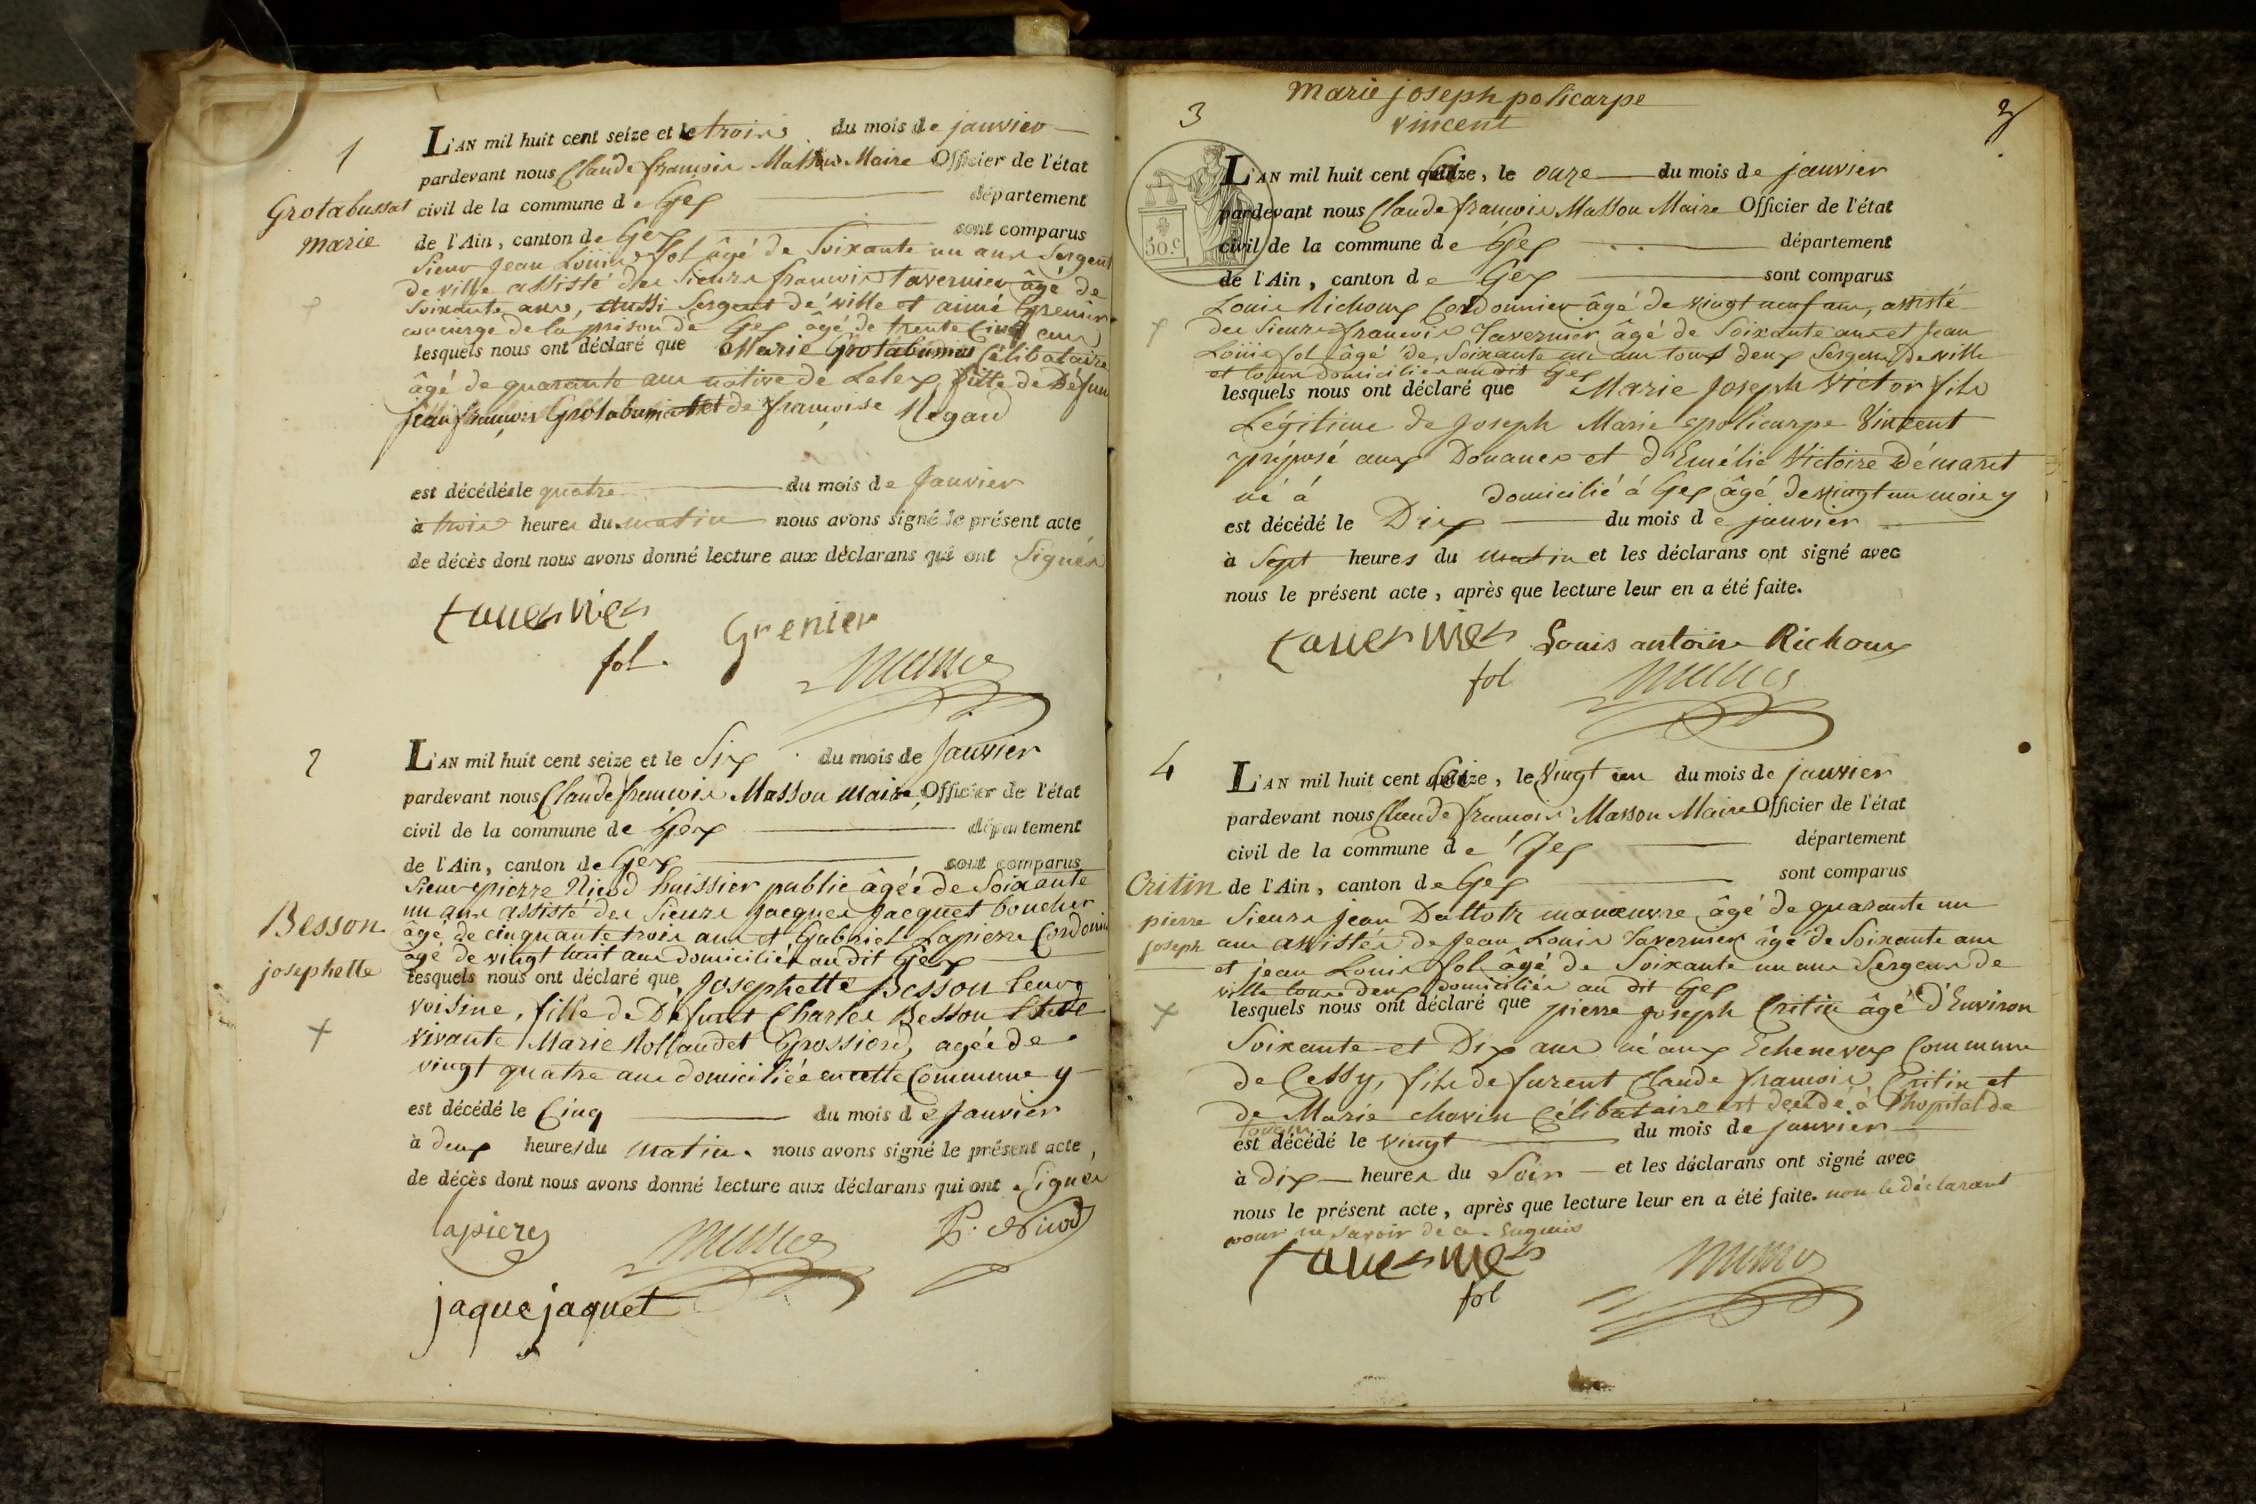 1
Grotabussat
marie
L'AN mil huit cent seize et le trois du mois de janvier
pardevant nous Claude françois Masson Maire Officier de l'état
civil de la commune de Gex département
de l'Ain, canton de Gex sont comparus
Sieur Jean Louis fol âgé de Soixante un ans Sergent
de ville assisté des Sieurs françois tavernier âgé de
Soixante ans, aussi Sergent de ville et aimé Grenier
concierge de la prison de Gex âgé de trente Cinq ans
lesquels nous ont déclaré que Marie Célibataire
âgé de quarante ans native de Lelex fille de Défunt
françois et de françoise Regard
est décédée le quatre du mois de Janvier
à trois heures du matin nous avons signé le présent acte
de décès dont nous avons donné lecture aux déclarans qui ont Signés
tavernier
Grenier
fol
2
Besson
josephette
L'AN mil huit cent seize et le Six du mois de Janvier
pardevant nous Claude françois Masson maire Officier de l'état
civil de la commune de Gex département
de l'Ain, canton de Gex sont comparus
Sieur pierre Nicod huissier public âgée de Soixante
un ans assisté des Sieurs Jacques Jacquet boucher
âgé de cinquante trois ans et Gabriel Lapierre Cordonnier
âgé de vingt huit ans domiciliés audit Gex
lesquels nous ont déclaré que Josephette Besson leur
voisine, fille de Defunt Charles Besson et de
vivante Marie Grossiord, agée de
vingt quatre ans domiciliée en cette Commune y
est décédé le Cinq du mois de Janvier
à deux heures du matin. nous avons signé le présent acte,
de décès dont nous avons donné lecture aux déclarans qui ont Signés
lapiere
P. Nicod
jaque jaquet
3
marie joseph policarpe
vincent
2
50 c
L'AN mil huit cent Seize, le onze du mois de janvier
pardevant nous Claude françois Masson Maire Officier de l'état
civil de la commune de Gex département
de l'Ain, canton de Gex sont comparus
Louis Richoux Cordonnier âgé de vingt neuf ans, assisté
des Sieurs françois Tavernier âgé de Soixante ans et Jean
Louis fol âgé de Soixante un ans tous deux Sergens de ville
et tous domiciliés audit Gex
lesquels nous ont déclaré que Marie Joseph Victor fils
Légitime de Joseph Marie policarpe Vincent
préposé aux Douanes et d'Emélie Victoire Démaret
né à domicilié à Gex âgé de vingt un mois y
est décédé le Dix du mois de janvier
à Sept heures du matin et les déclarans ont signé avec
nous le présent acte, après que lecture leur en a été faite.
tavernier Louis antoine Richoux
fol
4
Critin
pierre
joseph
L'AN mil huit cent Seize, le Vingt un du mois de janvier
pardevant nous Claude françois Masson Maire Officier de l'état
civil de la commune de Gex département
de l'Ain, canton de Gex sont comparus
Sieurs jean Dattoth manœuvre âgé de quarante un
ans assistés de Jean Louis Tavernier âgé de Soixante ans
et jean Louis fol âgé de Soixante un ans Sergens de
ville tous deux domiciliés au dit Gex
lesquels nous ont déclaré que pierre joseph Critin âgé d'Environ
Soixante et Dix ans né aux Echenevex Commune
de Cessy, fils de furent Claude françois Critin et
de Marie chavin Célibataire est décédé à l'hopital de
est décédé le vingt du mois de janvier
à Dix heures du Soir et les déclarans ont signé avec
nous le présent acte, après que lecture leur en a été faite. non le déclarant
pour ne Savoir de ce Enquis
tavernier
fol